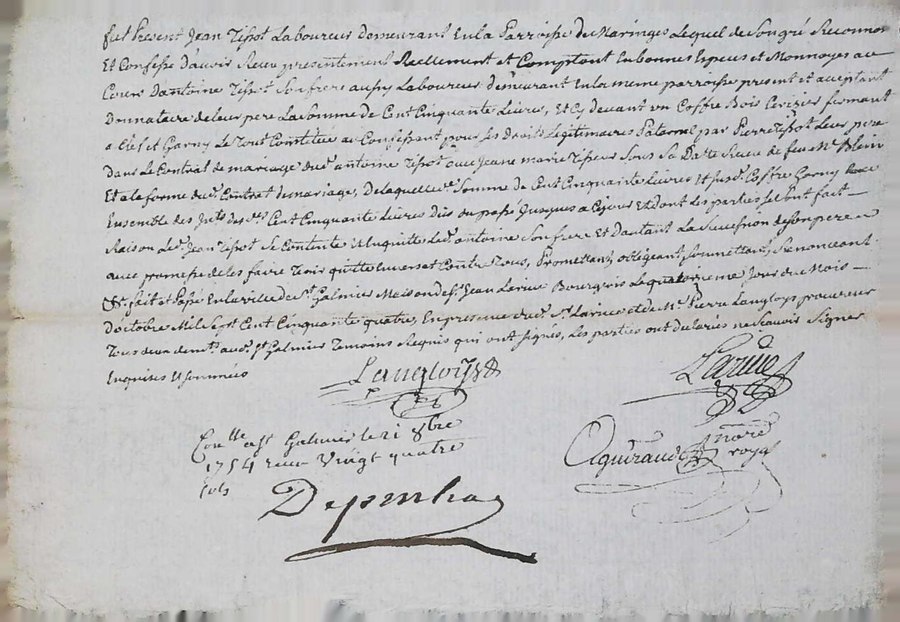 fut Present Jean Tissot Laboureur demeurant En la Parroisse de Maringes Lequel de Son gré Reconnoi
Et Confesse D'avoir Receu presentement Reellement et Comptant En bonnes Especes et Monnoyes au
Cours D'antoine Tissot Son frere aussy Laboureur demeurant En la meme parroisse present et acceptant
Donnataire de leur pere La Somme de Cent Cinquante Livres, Et Cy devant un Coffre Bois Cerizier fermant
a Clef et Garny Le Tout Constitué au Confessant pour Ses Droits Legitimaires Paternel par Pierre Tissot Leur pere
dans le Contrat de mariage dud. antoine Tissot avec Jeanne marie Tisseur Sous Sa Datte Receu de feu Me
Et a la forme dud. Contrat de mariage, De laquelle de. Somme de Cent Cinquante Livres Et susd. Coffre Garny
Ensemble des Jnts des des. Cent Cinquante Livres Dus du passé Jusques a Ce jour Et dont Les parties Se Sont fait
Raison Led. Jean Tissot Se Contente Et En quitte Led. antoine Son frere Et D'autant La Succession de Son pere
avec promesse de les faire Tenir quitte Envers et Contre Tous, Promettant, obligeant, Soumettant, Renonceant
fait et Passé En la ville de St. Galmier Maison de Sr. Jean Larue Bourgeois Le quatorzieme Jour du Mois
D'octobre Mil Sept Cent Cinquante quatre, En presence dud. Sr. Larue et de Me. Pierre Langloys procureur
Tous deux demts. aud. St Galmier Temoins Requis qui ont Signés, Les parties ont declarées ne Scavoir Signer
Enquises Et Sommées
Langloys
Larue
Conlle a St Galmier le 21 8bre
1754 receu Vingt quatre
Sols
Aguiraud Nore
royal